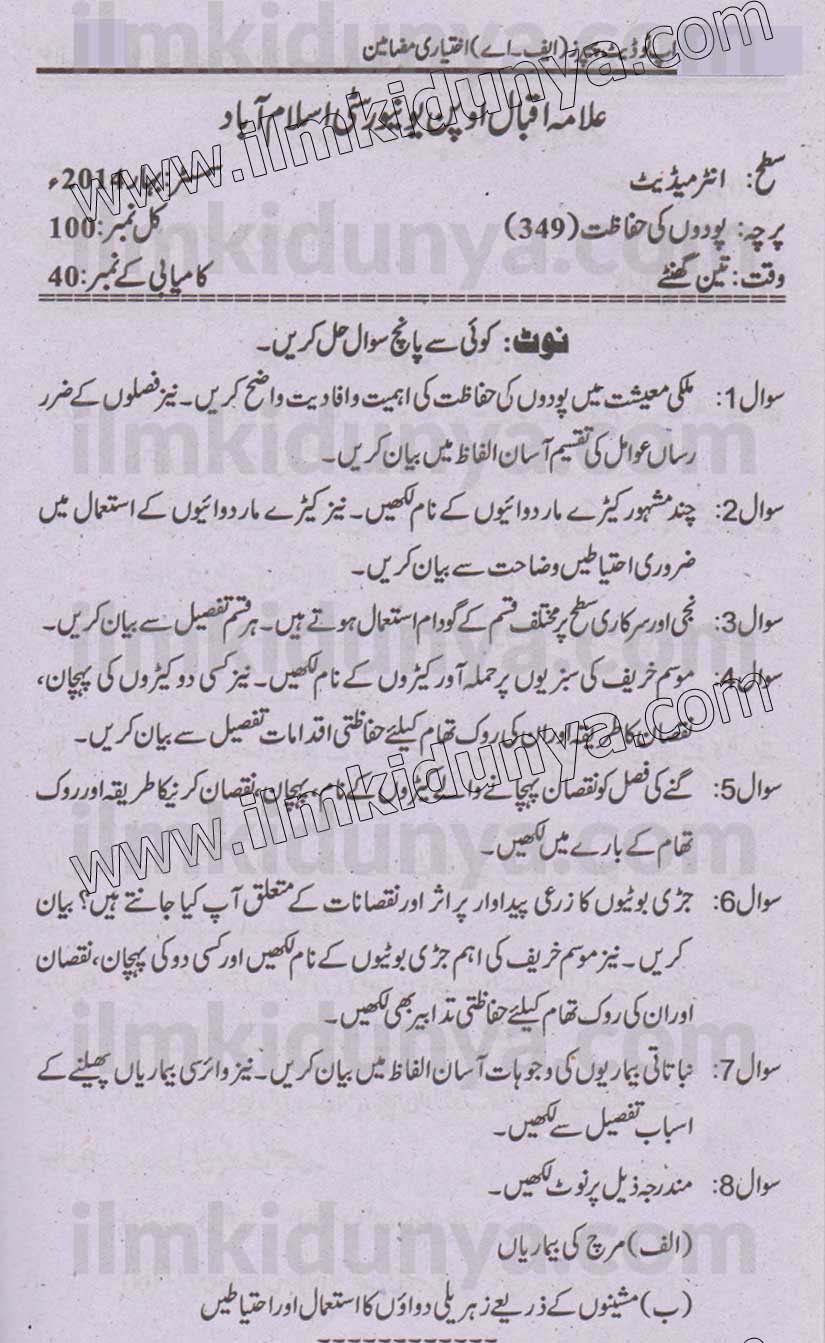 اپ ٹو ڈیٹ پیپرز (ایف۔اے) اختیاری مضامین
علامہ اقبال اوپن یونیورسٹی اسلام آباد
سطح: انٹرمیڈیٹ سمسٹر: بہار 2014ء
پرچہ: پودوں کی حفاظت (349) کل نمبر: 100
وقت: تین گھنٹے کامیابی کے نمبر: 40
نوٹ: کوئی سے پانچ سوال حل کریں۔
سوال 1: ملکی معیشت میں پودوں کی حفاظت کی اہمیت و افادیت واضح کریں۔ نیز فصلوں کے ضرر
رساں عوامل کی تقسیم آسان الفاظ میں بیان کریں۔
سوال 2: چند مشہور کیڑے مار دوائیوں کے نام لکھیں۔ نیز کیڑے مار دوائیوں کے استعمال میں
ضروری احتیاطیں وضاحت سے بیان کریں۔
سوال 3: نجی اور سرکاری سطح پر مختلف قسم کے گودام استعمال ہوتے ہیں۔ ہر قسم تفصیل سے بیان کریں۔
سوال 4: موسم خریف کی سبزیوں پر حملہ آور کیڑوں کے نام لکھیں۔ نیز کسی دو کیڑوں کی پہچان،
نقصان کا طریقہ اور ان کی روک تھام کیلئے حفاظتی اقدامات تفصیل سے بیان کریں۔
سوال 5: گنے کی فصل کو نقصان پہچانے والے کیڑوں کے نام، پہچان، نقصان کرنیکا طریقہ اور روک
تھام کے بارے میں لکھیں۔
سوال 6: جڑی بوٹیوں کا زرعی پیداوار پر اثر اور نقصانات کے متعلق آپ کیا جانتے ہیں؟ بیان
کریں۔ نیز موسم خریف کی اہم جڑی بوٹیوں کے نام لکھیں اور کسی دو کی پہچان، نقصان
اور ان کی روک تھام کیلئے حفاظتی تدابیر بھی لکھیں۔
سوال 7: نباتاتی بیماریوں کی وجوہات آسان الفاظ میں بیان کریں۔ نیز وائرسی بیماریاں پھیلنے کے
اسباب تفصیل سے لکھیں۔
سوال 8: مندرجہ ذیل پر نوٹ لکھیں۔
(الف) مرچ کی بیماریاں
(ب) مشینوں کے ذریعے زہریلی دواؤں کا استعمال اور احتیاطیں
www.ilmkidunya.com
www.ilmkidunya.com
ilmkidunya.com
ilmkidunya.com
ilmkidunya.com
ilmkidunya.com
ilmkidunya.com
ilmkidunya.com
ilmkidunya.com